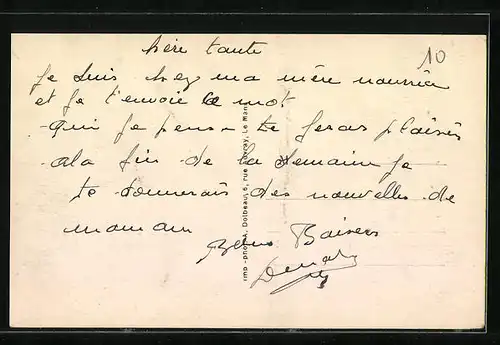 hère tante
10
Je suis chez ma mère nourrice
et je t'envoie ce mot
qui je pense te feras plaisir
a la fin de la semaine je
te donnerais des nouvelles de
maman
Bons Baisers
Imp.-phot. A. Dolbeau, 5, rue Auvray, Le Mans